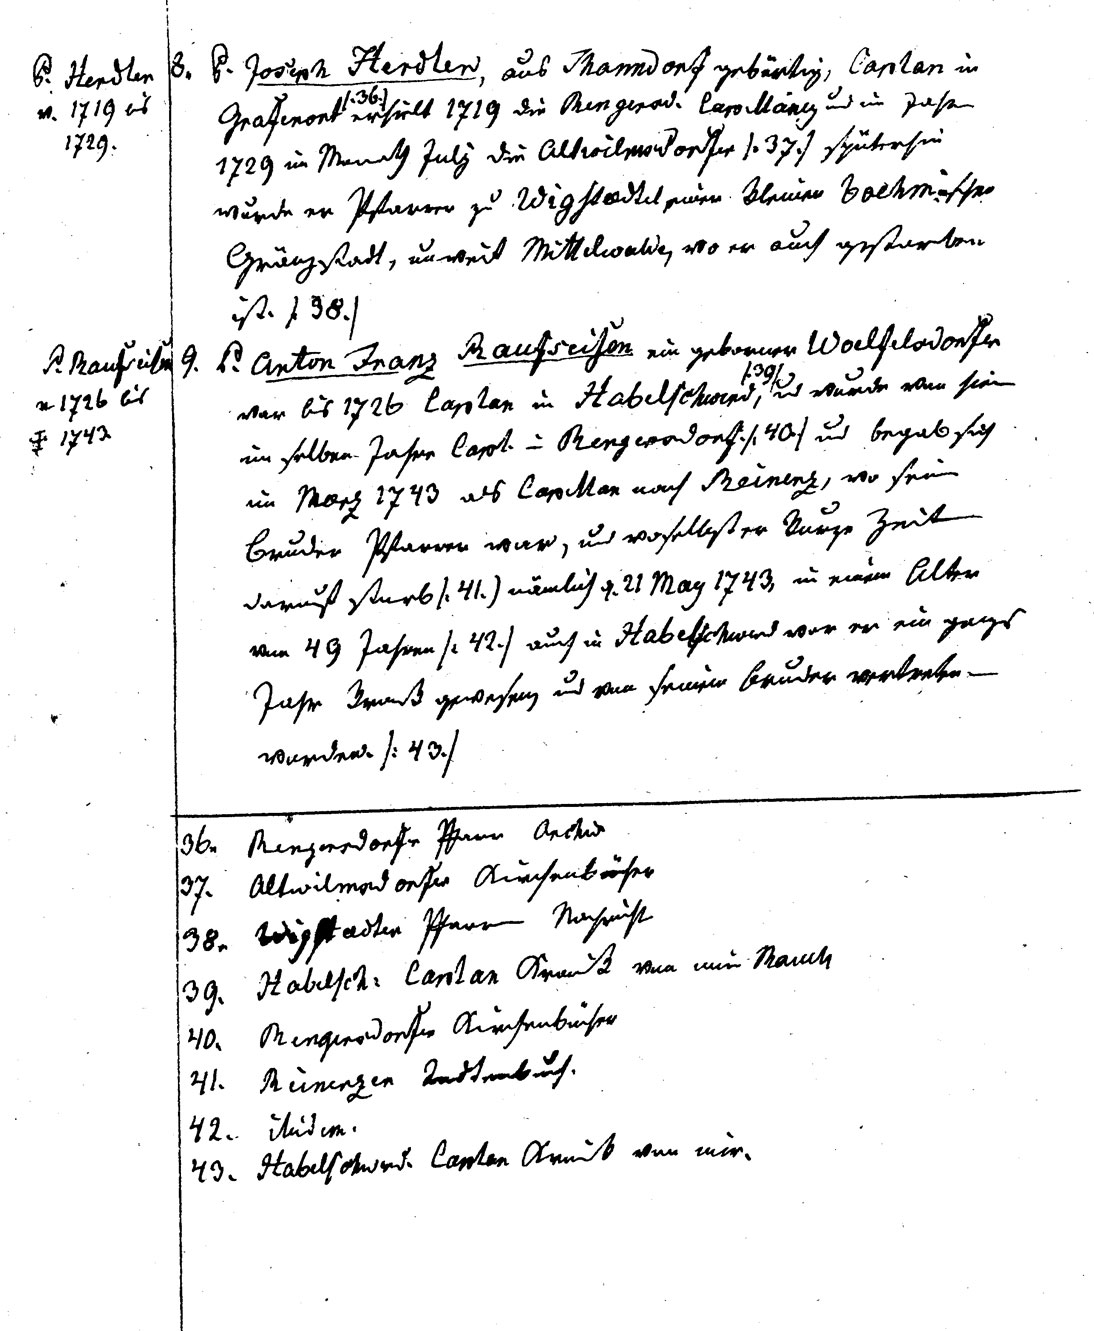 P. Herdler
v. 1719 bis
1729.
8. P. Joseph Herdler, aus Thanndorf gebürtig, Caplan in
Grafenort /:36:/ erhielt 1719 die Rengersd. Capellaney und im Jahr
1729 im Monath July die Altwilmsdorfer /:37:/ späterhin
wurde er Pfarrer zu Wigstadtel einer kleinen boehmischen
Gränzstadt, unweit Mittelwalde, wo er auch gestorben
ist. /:38./
P. Raufseisen
v 1726 bis
† 1743
9. P. Anton Franz Raufseisen ein geborner Woelfelsdorfer
war bis 1726 Caplan in Habelschwerd, /:39/ und wurde von hier
im selben Jahre Capl. in Rengersdorf /:40/ und begab sich
im Maerz 1743 als Capellan nach Reinerz, wo sein
Bruder Pfarrer war, und woselbst er kurze Zeit
darauf starb /:41.) nämlich d. 21 May 1743, in einem Alter
von 49 Jahren /:42:/ auch in Habelschwerd war er ein ganzes
Jahr krank gewesen und von seinem Bruder vertreten
worden. /:43./
36. Rengersdorfer Pfarr Archiv
37. Altwilmsdorfer Kirchenbücher
38. Wigstadter Pfarr Nachricht
39. Habelsch: Caplan von mir
40. Rengersdorfer Kirchenbücher
41. Reinerzer Todtenbuch.
42. ibidem.
43. Habelschwerd. Caplan von mir.